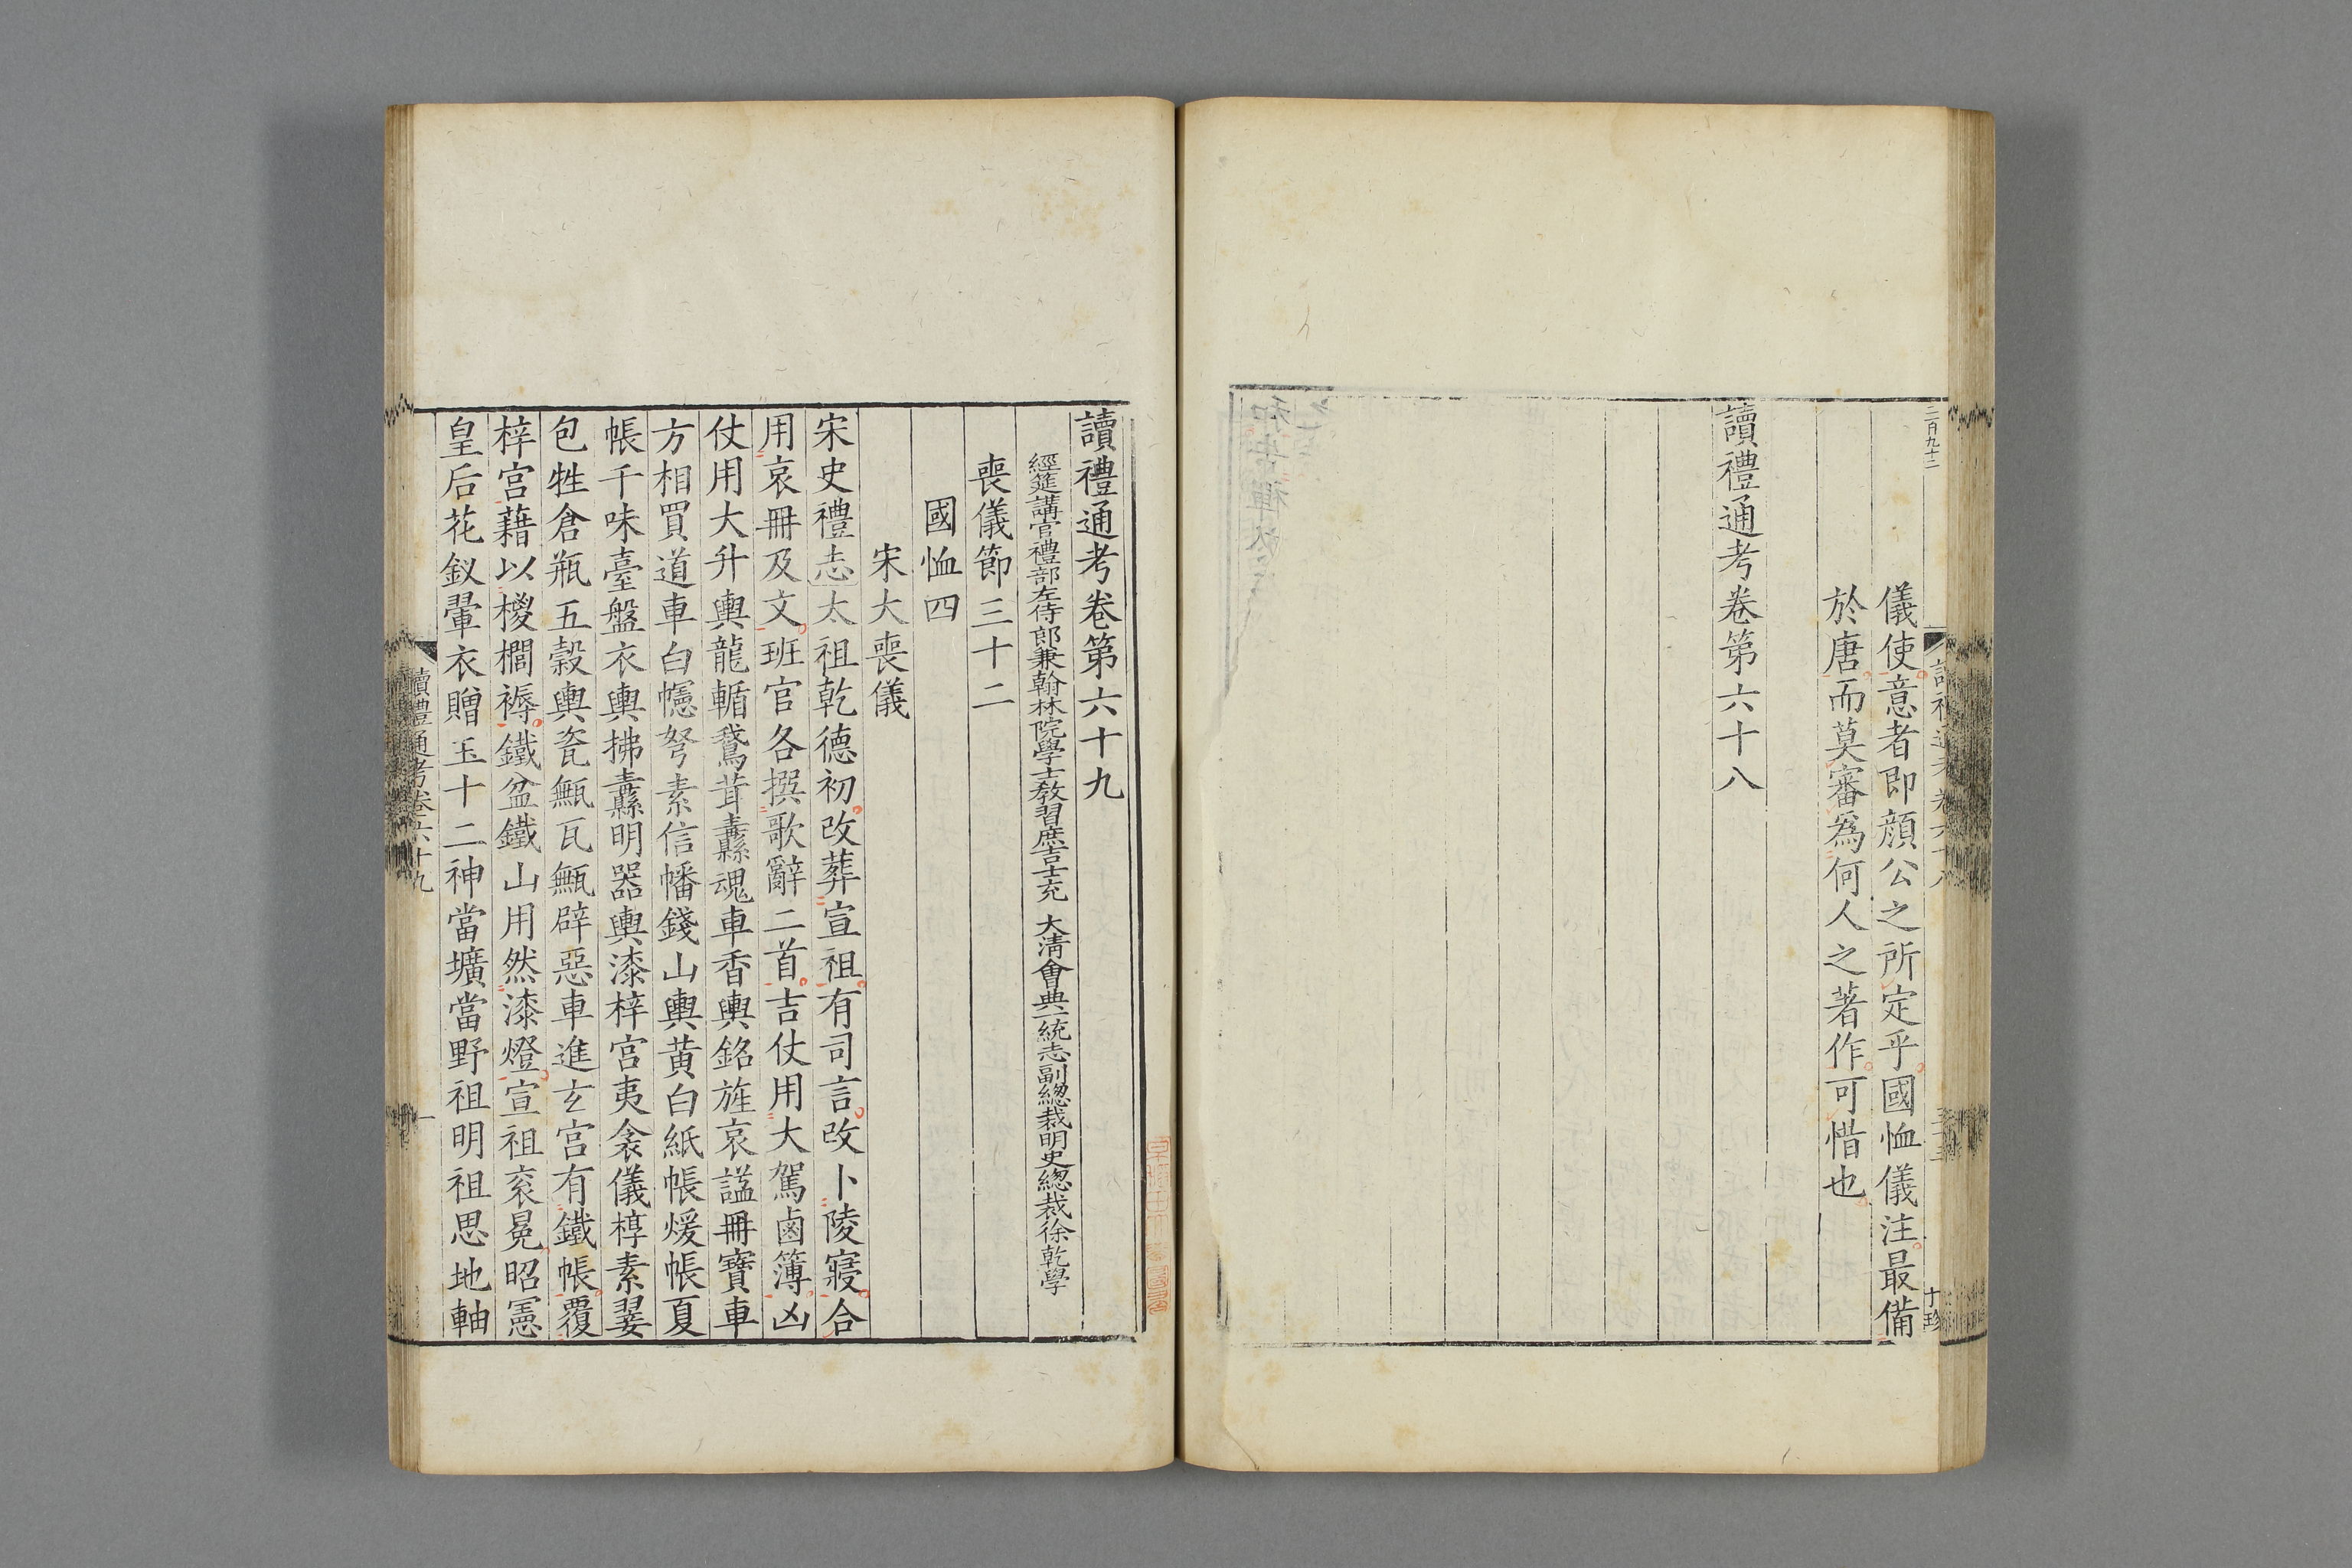 儀使意者即顔公之所定乎國恤儀注最備
於唐而莫審爲何人之著作可惜也
讀禮通考卷第六十八
讀禮通考卷第六十九
經筵講官禮部左侍郎兼翰林院學士教習庶吉士充 大清會典一統志副總裁明史總裁徐乾學
喪儀節三十二
國恤四
宋大喪儀
宋史禮志太祖乾德初改葬宣祖有司言改卜陵寢合
用哀冊及文班官各撰歌辭二首吉仗用大駕鹵簿凶
仗用大升輿龍輴鵞茸纛魂車香輿銘旌哀諡冊寶車
方相買道車白幰弩素信幡錢山輿黃白紙帳煖帳夏
帳千味臺盤衣輿拂纛明器輿漆梓宮夷衾儀椁素翣
包牲倉瓶五穀輿瓷甒瓦甒辟惡車進玄宮有鐵帳覆
梓宮藉以椶櫚褥鐵盆鐵山用然漆燈宣祖衮冕昭憲
皇后花釵翬衣贈玉十二神當壙當野祖明祖思地軸
讀禮通考卷六十九
一